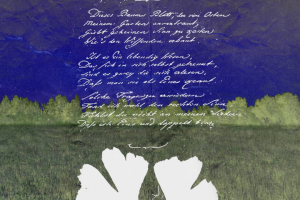 Dieses Baums Blatt, der von Osten
Meinem Garten anvertraut,
Giebt geheimen Sinn zu kosten
Wie's den Wissenden erbaut.
Ist es Ein lebendig Wesen,
Das sich in sich selbst getrennt,
Sind es zwey die sich erlesen,
Dass man sie als Eines kennt.
Solche Fragen zu erwiedern
Fand ich wohl den rechten Sinn
Fühlst du nicht an meinen Liedern
Dass ich Eins und doppelt bin